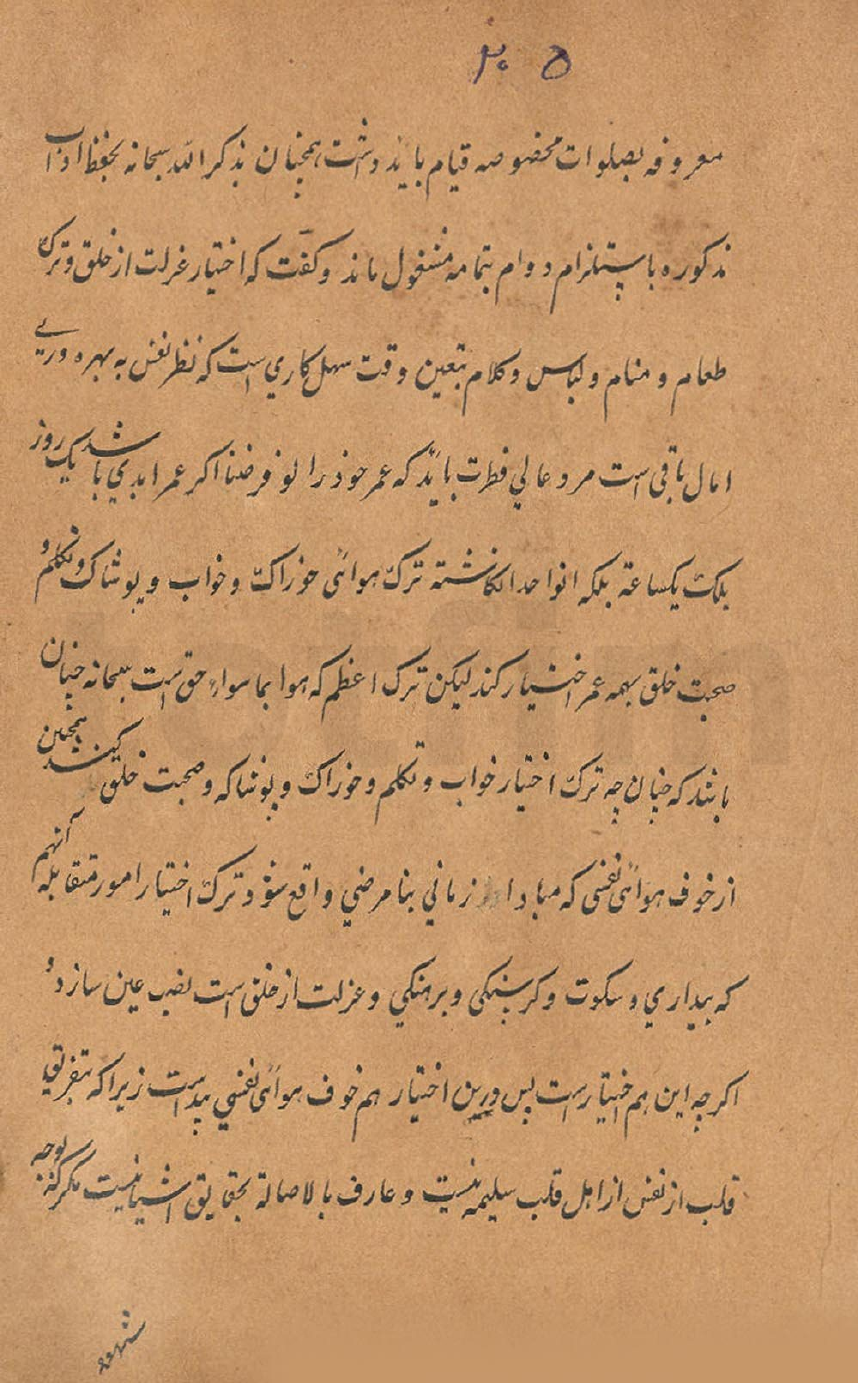 ۲۰۵
معروفه بصلوات مخصوصه قیام باید داشت همچنان بذکر الله سبحانه بحفظ اداب
مذکوره باستلزام دوام بتمامه مشغول ماند و گفت که اختیار عزلت از خلق و ترک
طعام و منام و لباس و کلام بتعین وقت سهل کاری است که نظر نفس به بهره وری
امال باقی است مرد عالی فطرت باید که عمر خود را لو فرضنا اکر عمر ابدی باشد یک روز
بلک یکساعة بلکه انواحد انکاشته ترک هوائی خوراک و خواب و پوشاک و تکلم و
صحبت خلق بهمه عمر اختیار کند لیکن ترک اعظم که هوا بما سواء حق است سبحانه چنان
باشد که چنان چه ترک اختیار خواب و تکلم و خوراک و پوشاکه و صحبت خلق کنند همچنین
از خوف هوائی نفسی که مبادا زمانی بنا مرضی واقع شود ترک اختیار امور متقابله آنهم
که بیداری و سکوت و کرسنکی و برهنکی و عزلت از خلق است نصب عین سازد و
اکرچه این هم اختیار است پس درین اختیار هم خوف هوائی نفسی پیداست زیرا که بتفریق
قلب از نفس از اهل قلب سلیمه نیست و عارف بالاصالة بحقایق اشیا نیست مکر که بوجه